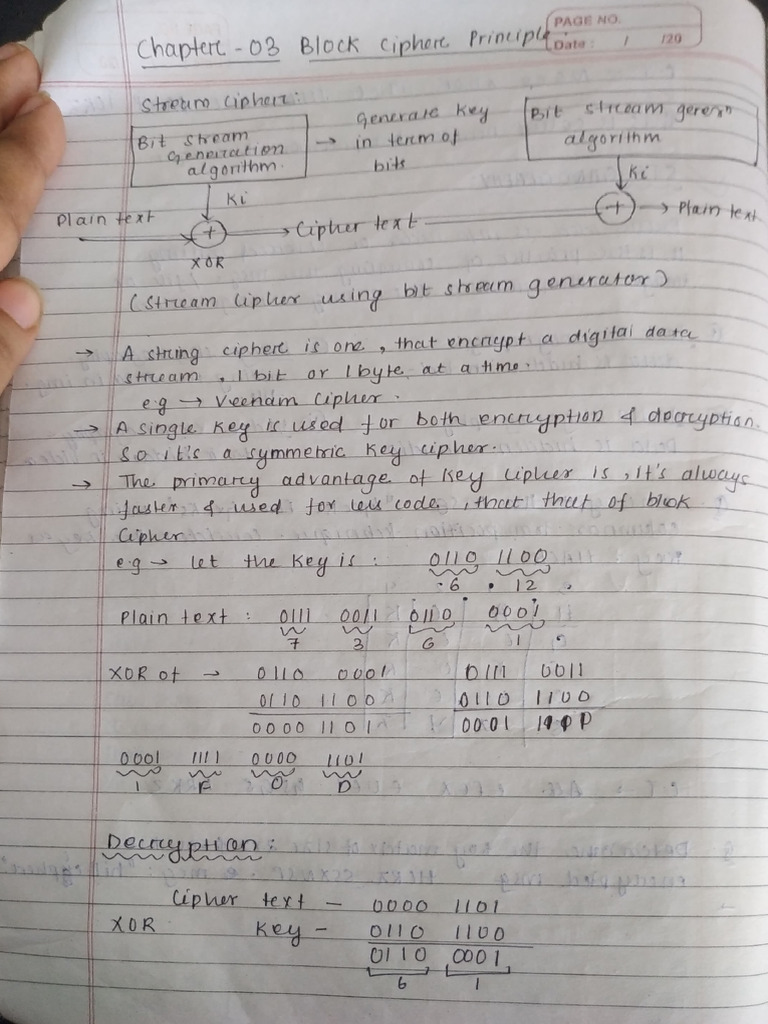 PAGE NO.
Date : / /20
Chapter - 03 Block Cipher Principle.
Stream Cipher:
Bit stream Generation algorithm. → Generate Key in term of bits
Bit stream generxn algorithm
Ki
Ki
Plain text + → Cipher text + → Plain text
XOR
(Stream Cipher using bit stream generator)
→ A string cipher is one, that encrypt a digital data
stream, 1 bit or 1 byte at a time.
e.g → Veenam Cipher.
→ A single key is used for both encryption & decryption.
So it's a symmetric key cipher.
→ The primary advantage of key cipher is, it's always
faster & used for less code, that that of block
Cipher
e.g → let the key is : 0110 1100
6 12
Plain text : 0111 0011 0110 0001
7 3 6 1
XOR of → 0110 0001 0111 0011
0110 1100 0110 1100
0000 1101 0001
0001 1111 0000 1101
1 F 0 D
Decryption:
Cipher text - 0000 1101
XOR Key - 0110 1100
0110 0001
6 1